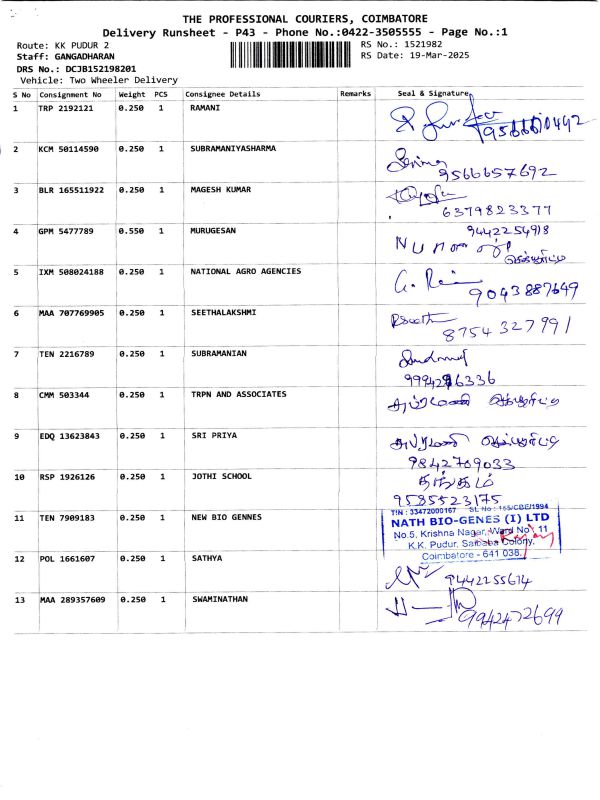 THE PROFESSIONAL COURIERS, COIMBATORE
Delivery Runsheet - P43 - Phone No.:0422-3505555 - Page No.:1
Route: KK PUDUR 2 RS No.: 1521982
Staff: GANGADHARAN RS Date: 19-Mar-2025
DRS No.: DCJB152198201
Vehicle: Two Wheeler Delivery
S No Consignment No Weight PCS Consignee Details Remarks Seal & Signature
1 TRP 2192121 0.250 1 RAMANI
2 KCM 50114590 0.250 1 SUBRAMANIYASHARMA
9566657692
3 BLR 165511922 0.250 1 MAGESH KUMAR
6379823377
4 GPM 5477789 0.550 1 MURUGESAN 9442254918
5 IXM 508024188 0.250 1 NATIONAL AGRO AGENCIES
9043887649
6 MAA 707769905 0.250 1 SEETHALAKSHMI
8754327991
7 TEN 2216789 0.250 1 SUBRAMANIAN
8 CMM 503344 0.250 1 TRPN AND ASSOCIATES
9 EDQ 13623843 0.250 1 SRI PRIYA
9842709033
10 RSP 1926126 0.250 1 JOTHI SCHOOL
9585523175
11 TEN 7909183 0.250 1 NEW BIO GENNES
TIN : 33472000167 SL No : 155/CBE/1994
NATH BIO-GENES (I) LTD
No.5, Krishna Nagar, Ward No : 11
K.K. Pudur, Saibaba Colony,
Coimbatore - 641 038.
12 POL 1661607 0.250 1 SATHYA
9442255614
13 MAA 289357609 0.250 1 SWAMINATHAN
9942472699